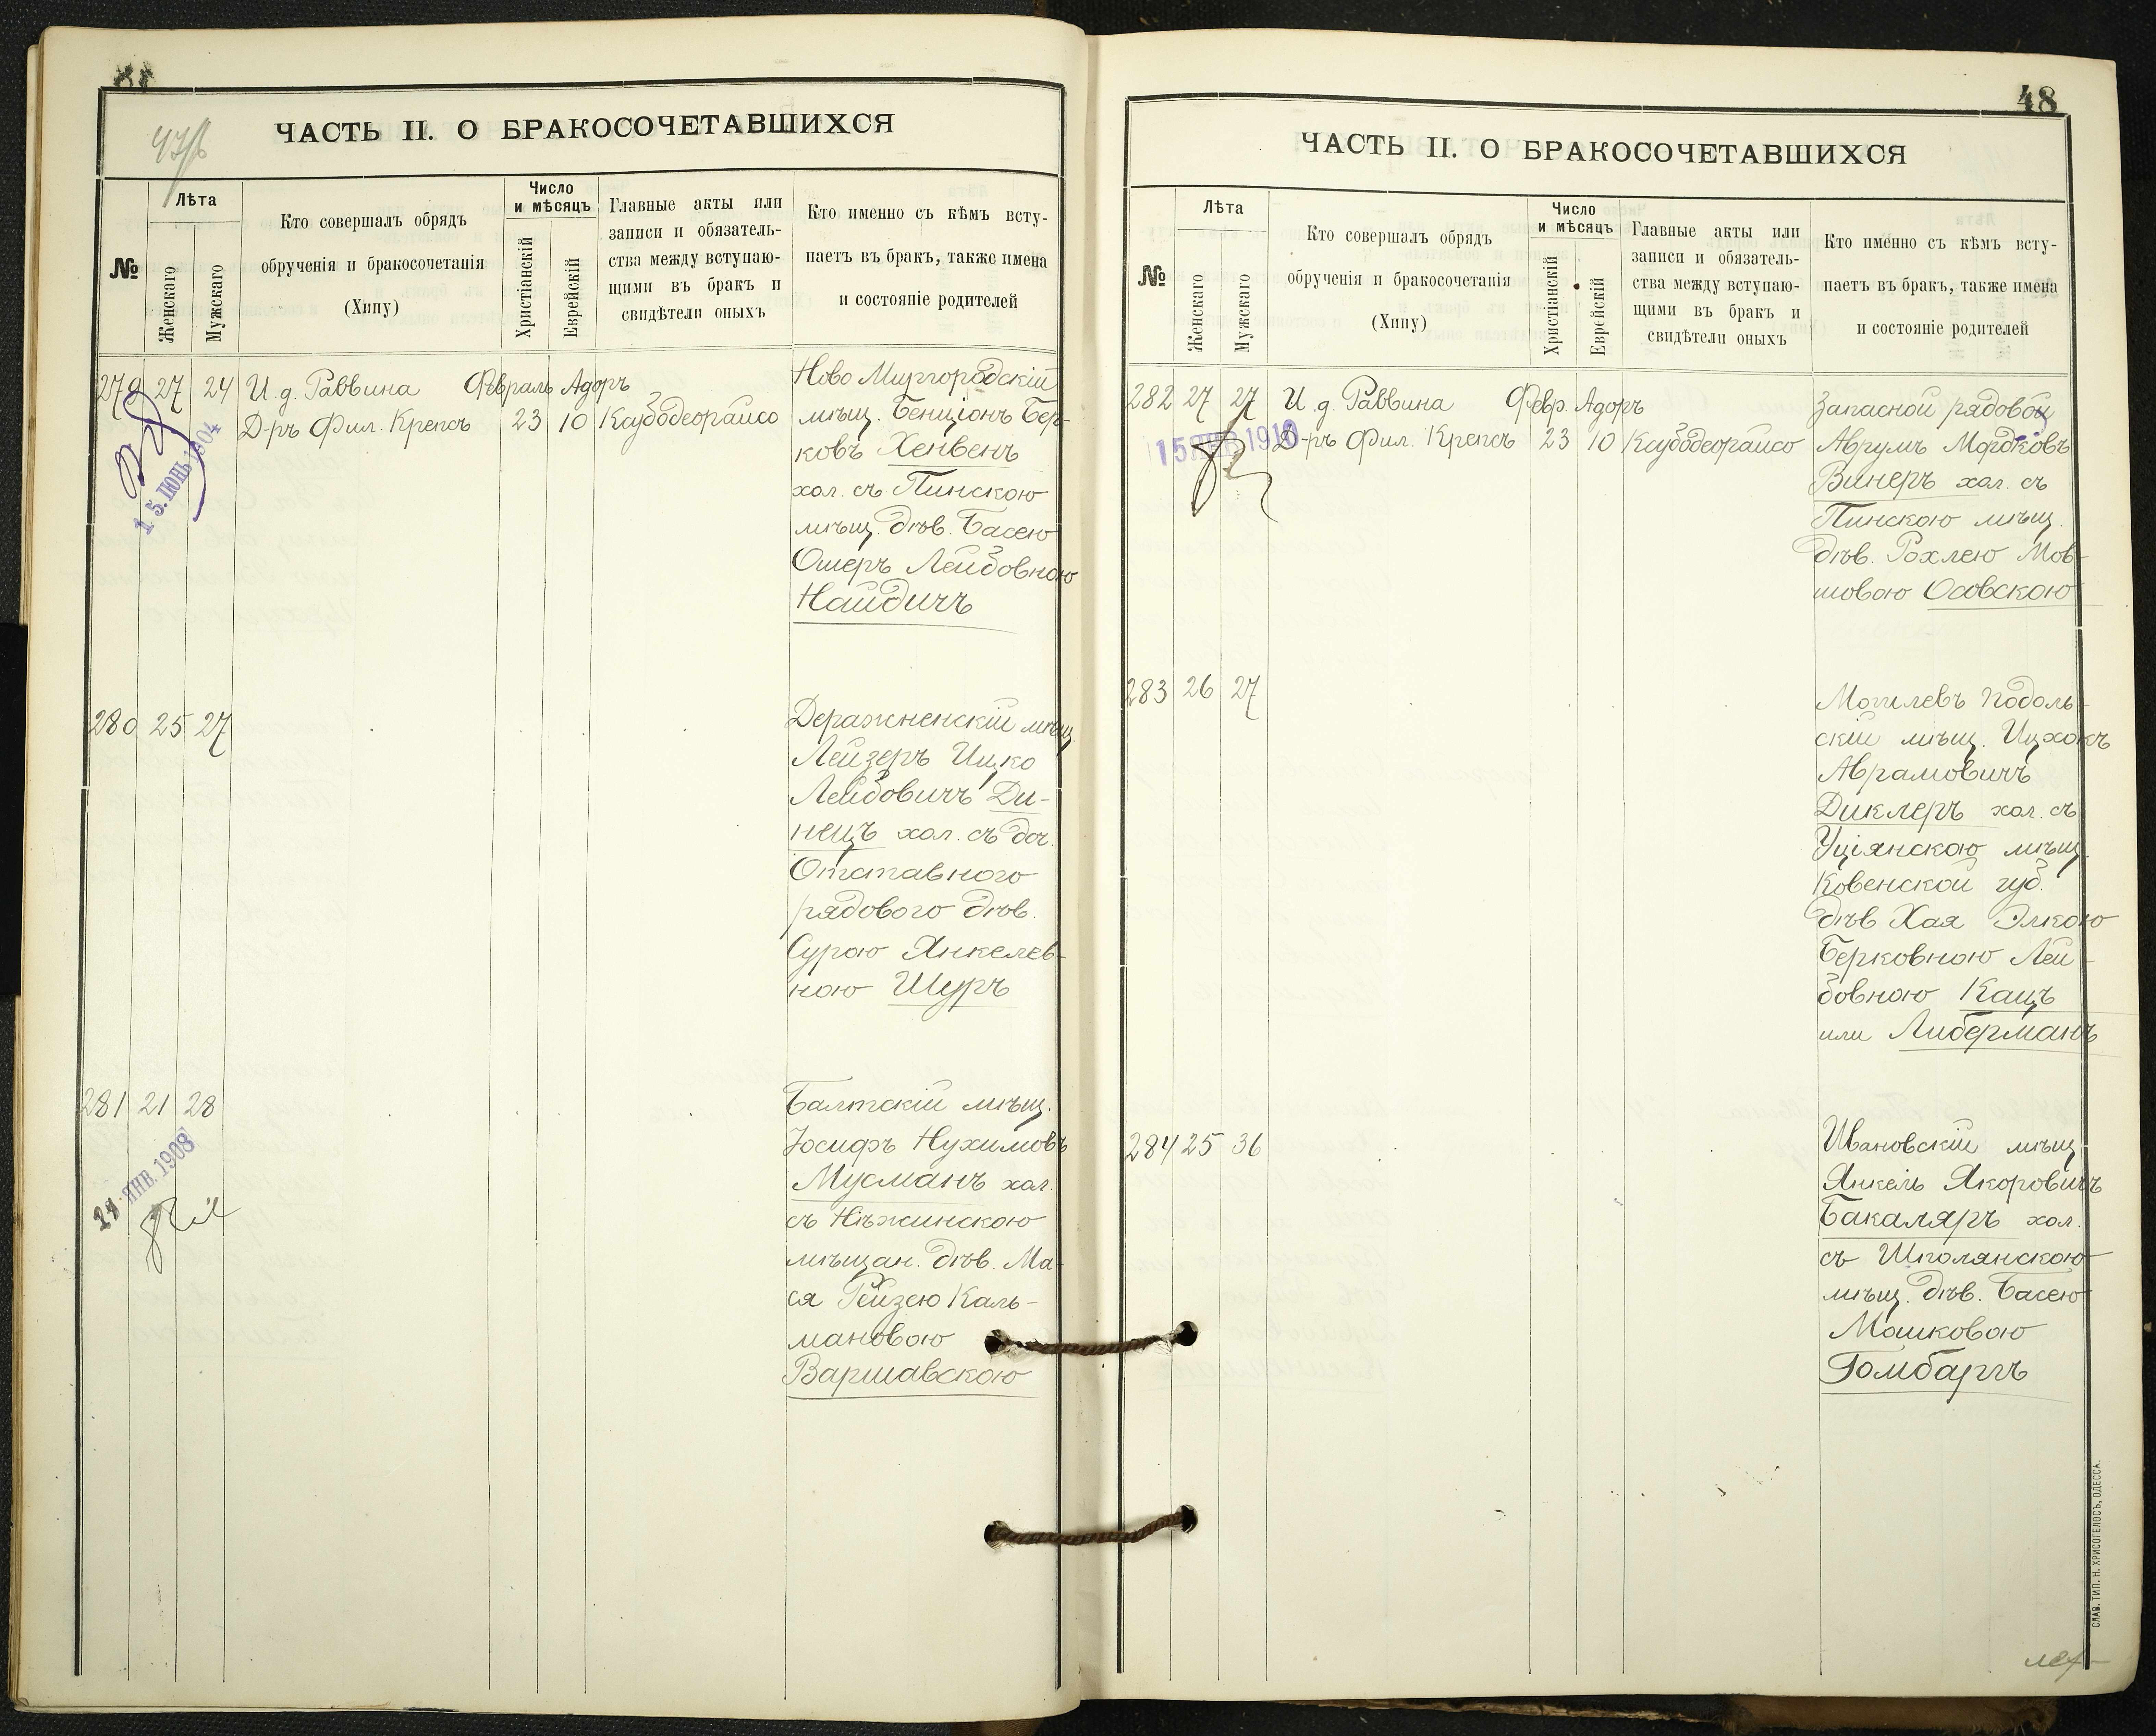 47/б
ЧАСТЬ II. О БРАКОСОЧЕТАВШИХСЯ
№
Лѣта
Женскаго
Мужскаго
Кто совершалъ обрядъ
обрученія и бракосочетанія
(Хипу)
Число
и мѣсяцъ
Христіанскій
Еврейскій
Главные акты или
записи и обязатель-
ства между вступаю-
щими въ бракъ и
свидѣтели оныхъ
Кто именно съ кѣмъ всту-
паетъ въ бракъ, также имена
и состояніе родителей
279 27 24 И. д. Раввина Февраль Адоръ
Д-ръ Фил. Крепсъ 23 10
15. ІЮНЬ 1904
Ново Миргородскій
мѣщ. Бенціонъ Бер-
ковъ Хенвенъ
хол. съ Пинскою
мѣщ. дѣв. Басею
Ошеръ Лейбовною
Найдичъ
280 25 27
Деражненскій мѣщ.
Лейзеръ Ицко
Лейбовичъ Ди-
нецъ хол. съ доч.
Отставного
рядового дѣв.
Сурою Янкелев-
ною Шуръ
281 21 28
21 ЯНВ. 1908
Балтскій мѣщ.
Іосифъ Нухимовъ
Мусманъ хол.
съ Нѣжинскою
мѣщан. дѣв. Ма-
ся Рейзею Каль-
мановою
Варшавскою
48
ЧАСТЬ II. О БРАКОСОЧЕТАВШИХСЯ
№
Лѣта
Женскаго
Мужскаго
Кто совершалъ обрядъ
обрученія и бракосочетанія
(Хипу)
Число
и мѣсяцъ
Христіанскій
Еврейскій
Главные акты или
записи и обязатель-
ства между вступаю-
щими въ бракъ и
свидѣтели оныхъ
Кто именно съ кѣмъ всту-
паетъ въ бракъ, также имена
и состояніе родителей
282 27 27 И. д. Раввина Февр. Адоръ
15 ЯНВ. 1910 Д-ръ Фил. Крепсъ 23 10
Запасной рядовой
Аврумъ Мордковъ
Винеръ хол. съ
Пинскою мѣщ.
дѣв. Рохлею Мов-
шовою Осовскою
283 26 27
Могилевъ Подоль-
скій мѣщ. Ицхокъ
Абрамовичъ
Диклеръ хол. съ
Уціянскою мѣщ.
Ковенской губ.
дѣв Хая Элкою
Берковною Лей-
бовною Кацъ
или Либерманъ
284 25 36
Ивановскій мѣщ
Янкель Якоровичъ
Бакаляръ хол.
съ Шполянскою
мѣщ. дѣв. Басею
Мошковою
Гомбаргъ
СЛАВ. ТИП. Н. ХРИСОГЕЛОСЪ, ОДЕССА.